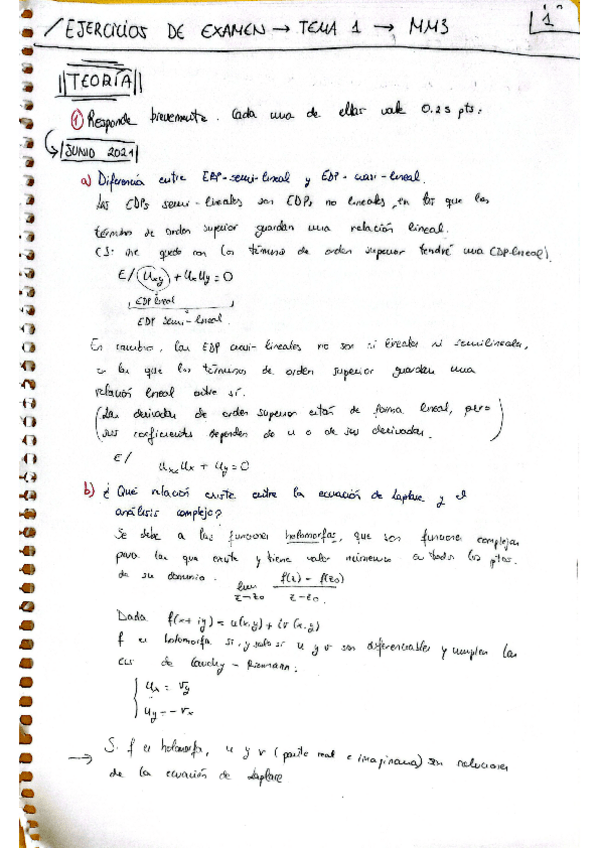 /EJERCICIOS DE EXAMEN → TEMA 1 → MM3
1
||TEORÍA||
① Responde brevemente. Cada una de ellas vale 0.25 pts.
|JUNIO 2021|
a) Diferencia entre EDP-semi-lineal y EDP-cuasi-lineal.
Las EDPs semi-lineales son EDPs no lineales, en las que los
términos de orden superior guardan una relación lineal.
(Si me quedo con los términos de orden superior tendré una EDP-lineal).
E/ Uxy + UxUy = 0
EDP lineal
EDP semi-lineal.
En cambio, las EDP cuasi-lineales no son ni lineales ni semilineales,
en las que los términos de orden superior guardan una
relación lineal entre sí.
(Las derivadas de orden superior están de forma lineal, pero
sus coeficientes dependen de u o de sus derivadas.)
E/
UxxUx + Uy = 0
b) ¿Qué relación existe entre la ecuación de Laplace y el
análisis complejo?
Se debe a las funciones holomorfas, que son funciones complejas
para las que existe y tiene valor en todos los ptos.
de su dominio. lim f(z) - f(z0)
z→z0 z-z0.
Dada f(x+iy) = u(x,y) + iv(x,y)
f es holomorfa si y solo si u y v son diferenciables y cumplen las
de Cauchy-Riemann:
{ Ux = Vy
Uy = -Vx
→ Si f es holomorfa, u y v (parte real e imaginaria) son soluciones
de la ecuación de Laplace